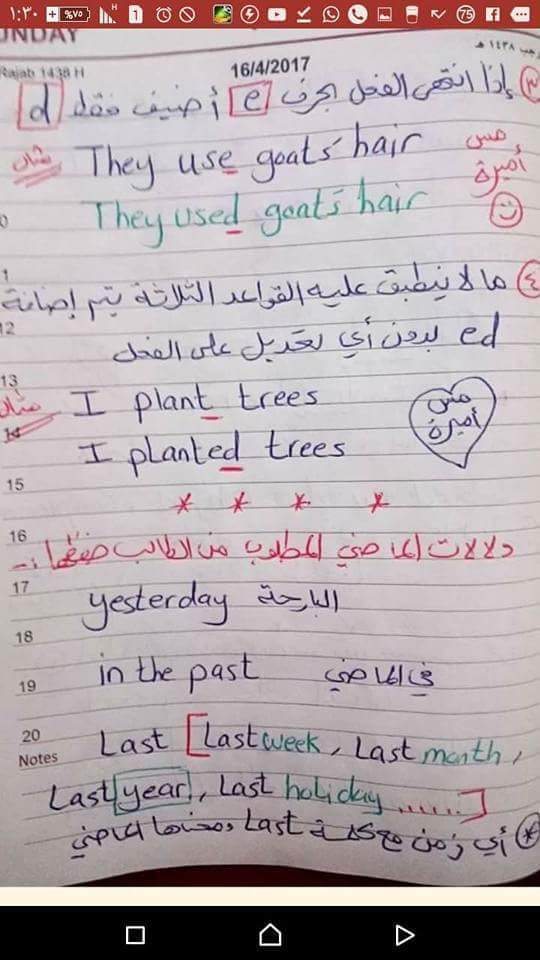 ١:٣٠
%٧٥
H
1
75
UNDAY
رجب ١٤٣٨ هـ
Rajab 1438 H
16/4/2017
٣ إذا انتهى الفعل بحرف e أضيف فقط d
مثال They use goats' hair
مس أميرة
They used goats' hair
٤ ما لا ينطبق عليه القواعد الثلاثة يتم إضافة
12
ed بدون أي تعديل على الفعل
13
مثال I plant trees
مس أميرة
14
I planted trees
15
* * * *
16
دلالات الماضي المطلوب من الطالب حفظها :-
17
yesterday البارحة
18
in the past في الماضي
19
20
Last [Last week , Last month ,
Notes
Last year , Last holiday ......]
* أي زمن مع كلمة Last ومعنا الماضي